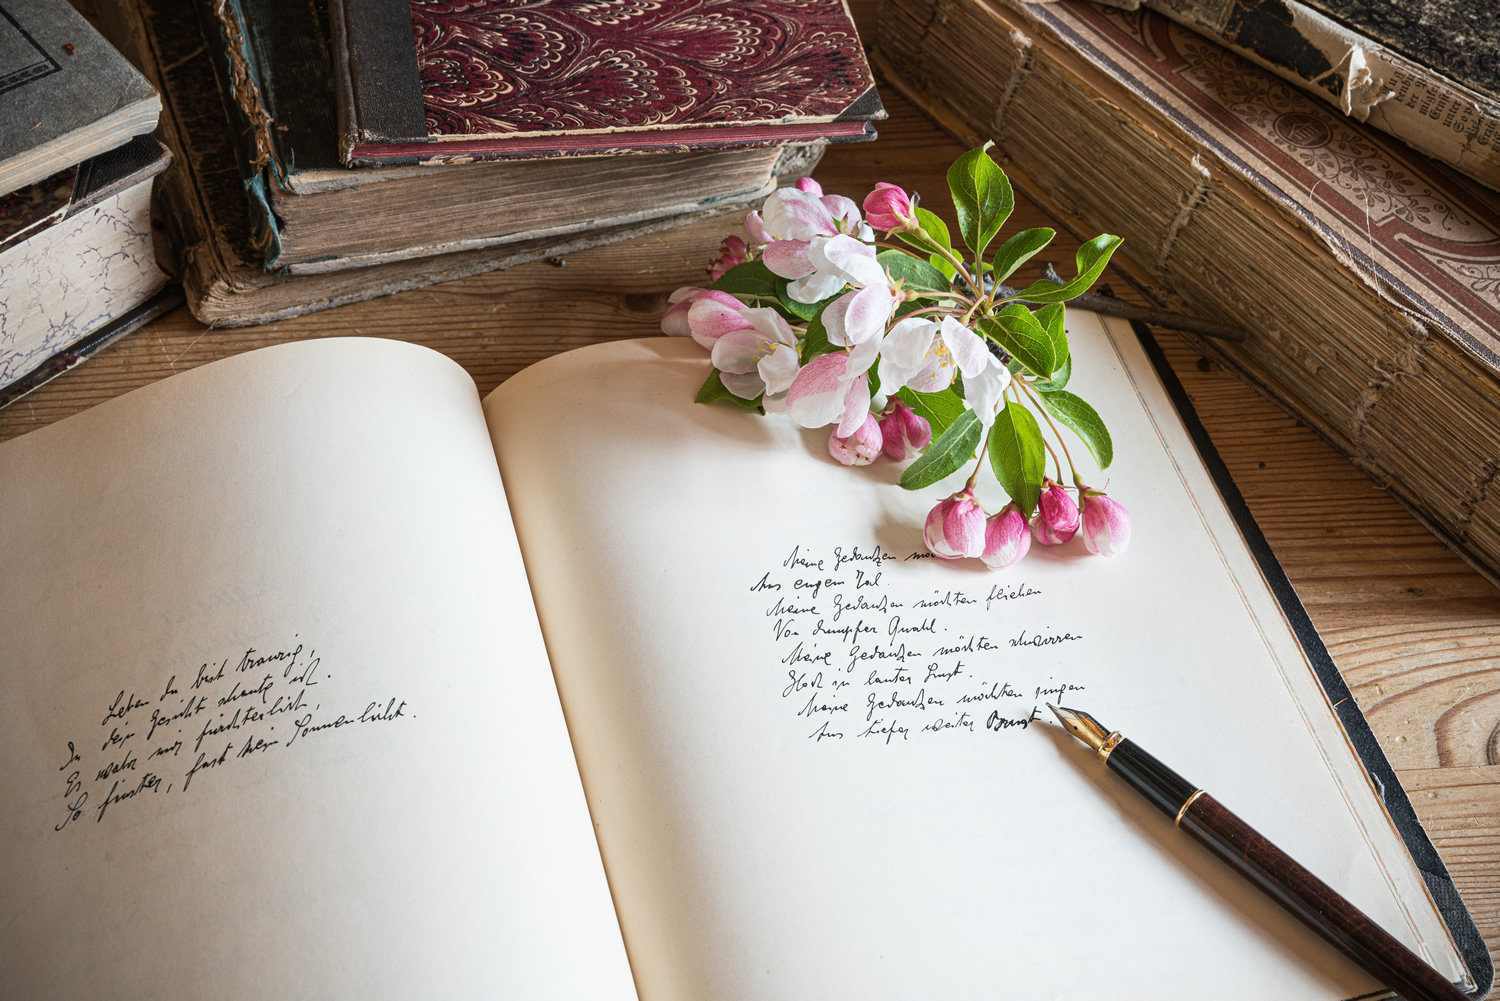 Leben du bist traurig,
In dein Gesicht schaute ich.
Es mir fürchterlich,
So finster, fast kein Sonnenlicht.
Meine Gedanken
Aus engem Tal.
Meine Gedanken möchten fliehen
Von dumpfer Quahl.
Meine Gedanken möchten schwirren
in lauter Lust.
Meine Gedanken möchten singen
Aus tiefer weiter Brust.